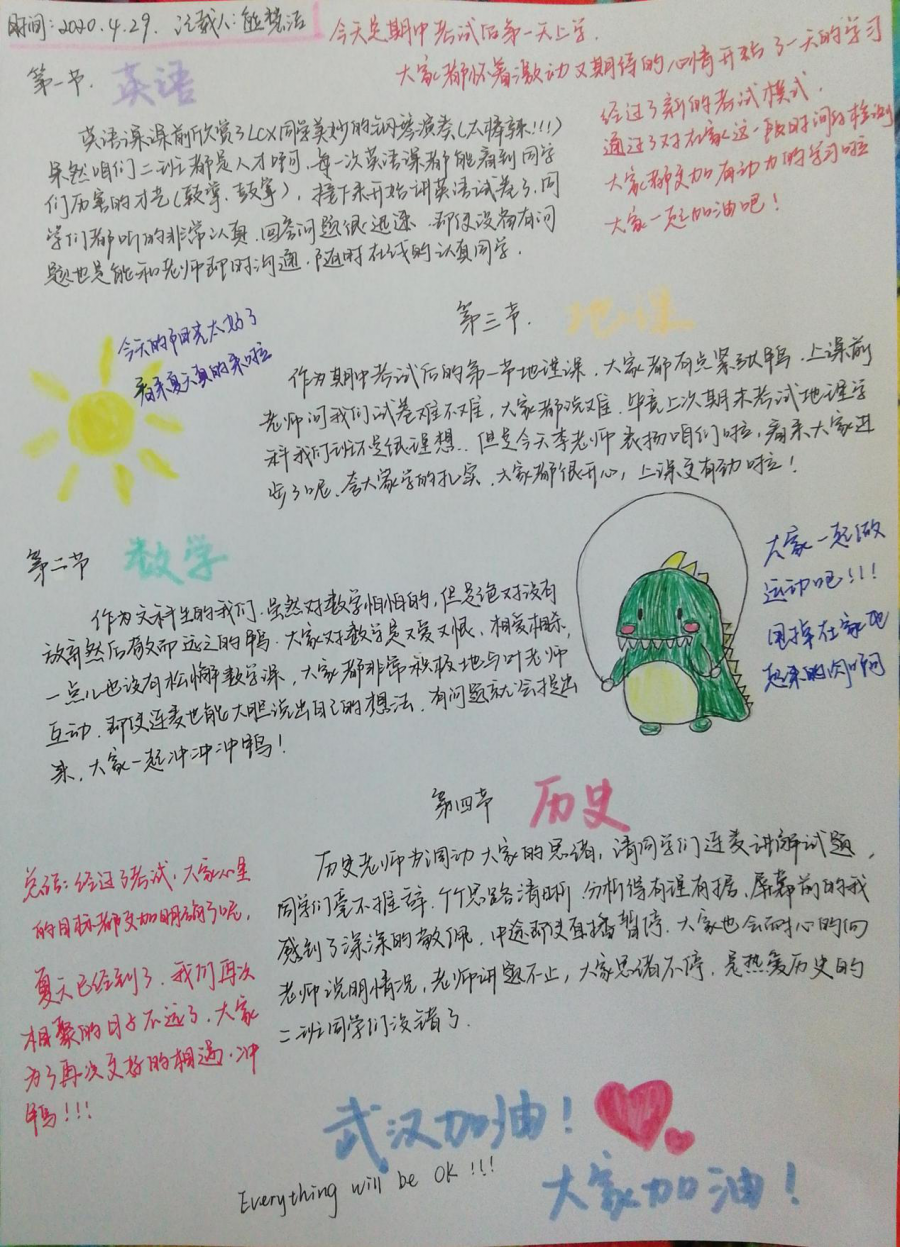 时间:2020.4.29. 记载人:熊楚洁
今天是期中考试后第一天上学.
大家都怀着激动又期待的心情开始了一天的学习
经过了新的考试模式.
通过了对在家这一段时间的检测
大家都更加有动力的学习啦
大家一起加油吧!
第一节. 英语
英语课课前欣赏了LCX同学美妙的钢琴演奏(太棒辣!!!)
果然咱们二班都是人才呀呵,每一次英语课都能看到同学
们厉害的才艺(鼓掌.鼓掌),接下来开始讲英语试卷了,同
学们都听的非常认真.回答问题很迅速.即使没有问
题也是能和老师即时沟通.随时在线的认真同学.
今天的阳光太好了
看来夏天真的来啦
第三节. 地理
作为期中考试后的第一节地理课.大家都有点紧张鸭.上课前
老师问我们试卷难不难,大家都说难.毕竟上次期末考试地理学
科我们班不是很理想..但是今天李老师表扬咱们啦,看来大家进
步了呢.夸大家学的扎实.大家都很开心,上课更有动啦!
第二节 数学
作为文科生的我们.虽然对数学怕怕的,但是绝对没有
放弃然后敬而远之的鸭.大家对数学是又爱又恨、相爱相杀,
一点儿也没有松懈数学课,大家都非常积极地与叶老师
互动.即使连麦也能大胆说出自己的想法.有问题就会提出
来,大家一起冲冲冲鸭!
大家一起做
运动吧!!!
甩掉在家地
起来的肉啊
第四节 历史
历史老师为调动大家的思绪,请同学们连麦讲解试题,
同学们毫不推辞.个个思路清晰.分析得有理有据.屏幕前的我
感到了深深的敬佩.中途即使直播暂停.大家也会耐心的向
老师说明情况,老师讲题不止,大家思绪不停.是热爱历史的
二班同学们没错了.
总结:经过了考试,大家心里
的目标都更加明确了呢,
夏天已经到了.我们再次
相聚的日子不远了.大家
为了再次更好的相遇.冲
鸭!!!
武汉加油!
Everything will be OK!!!
大家加油!